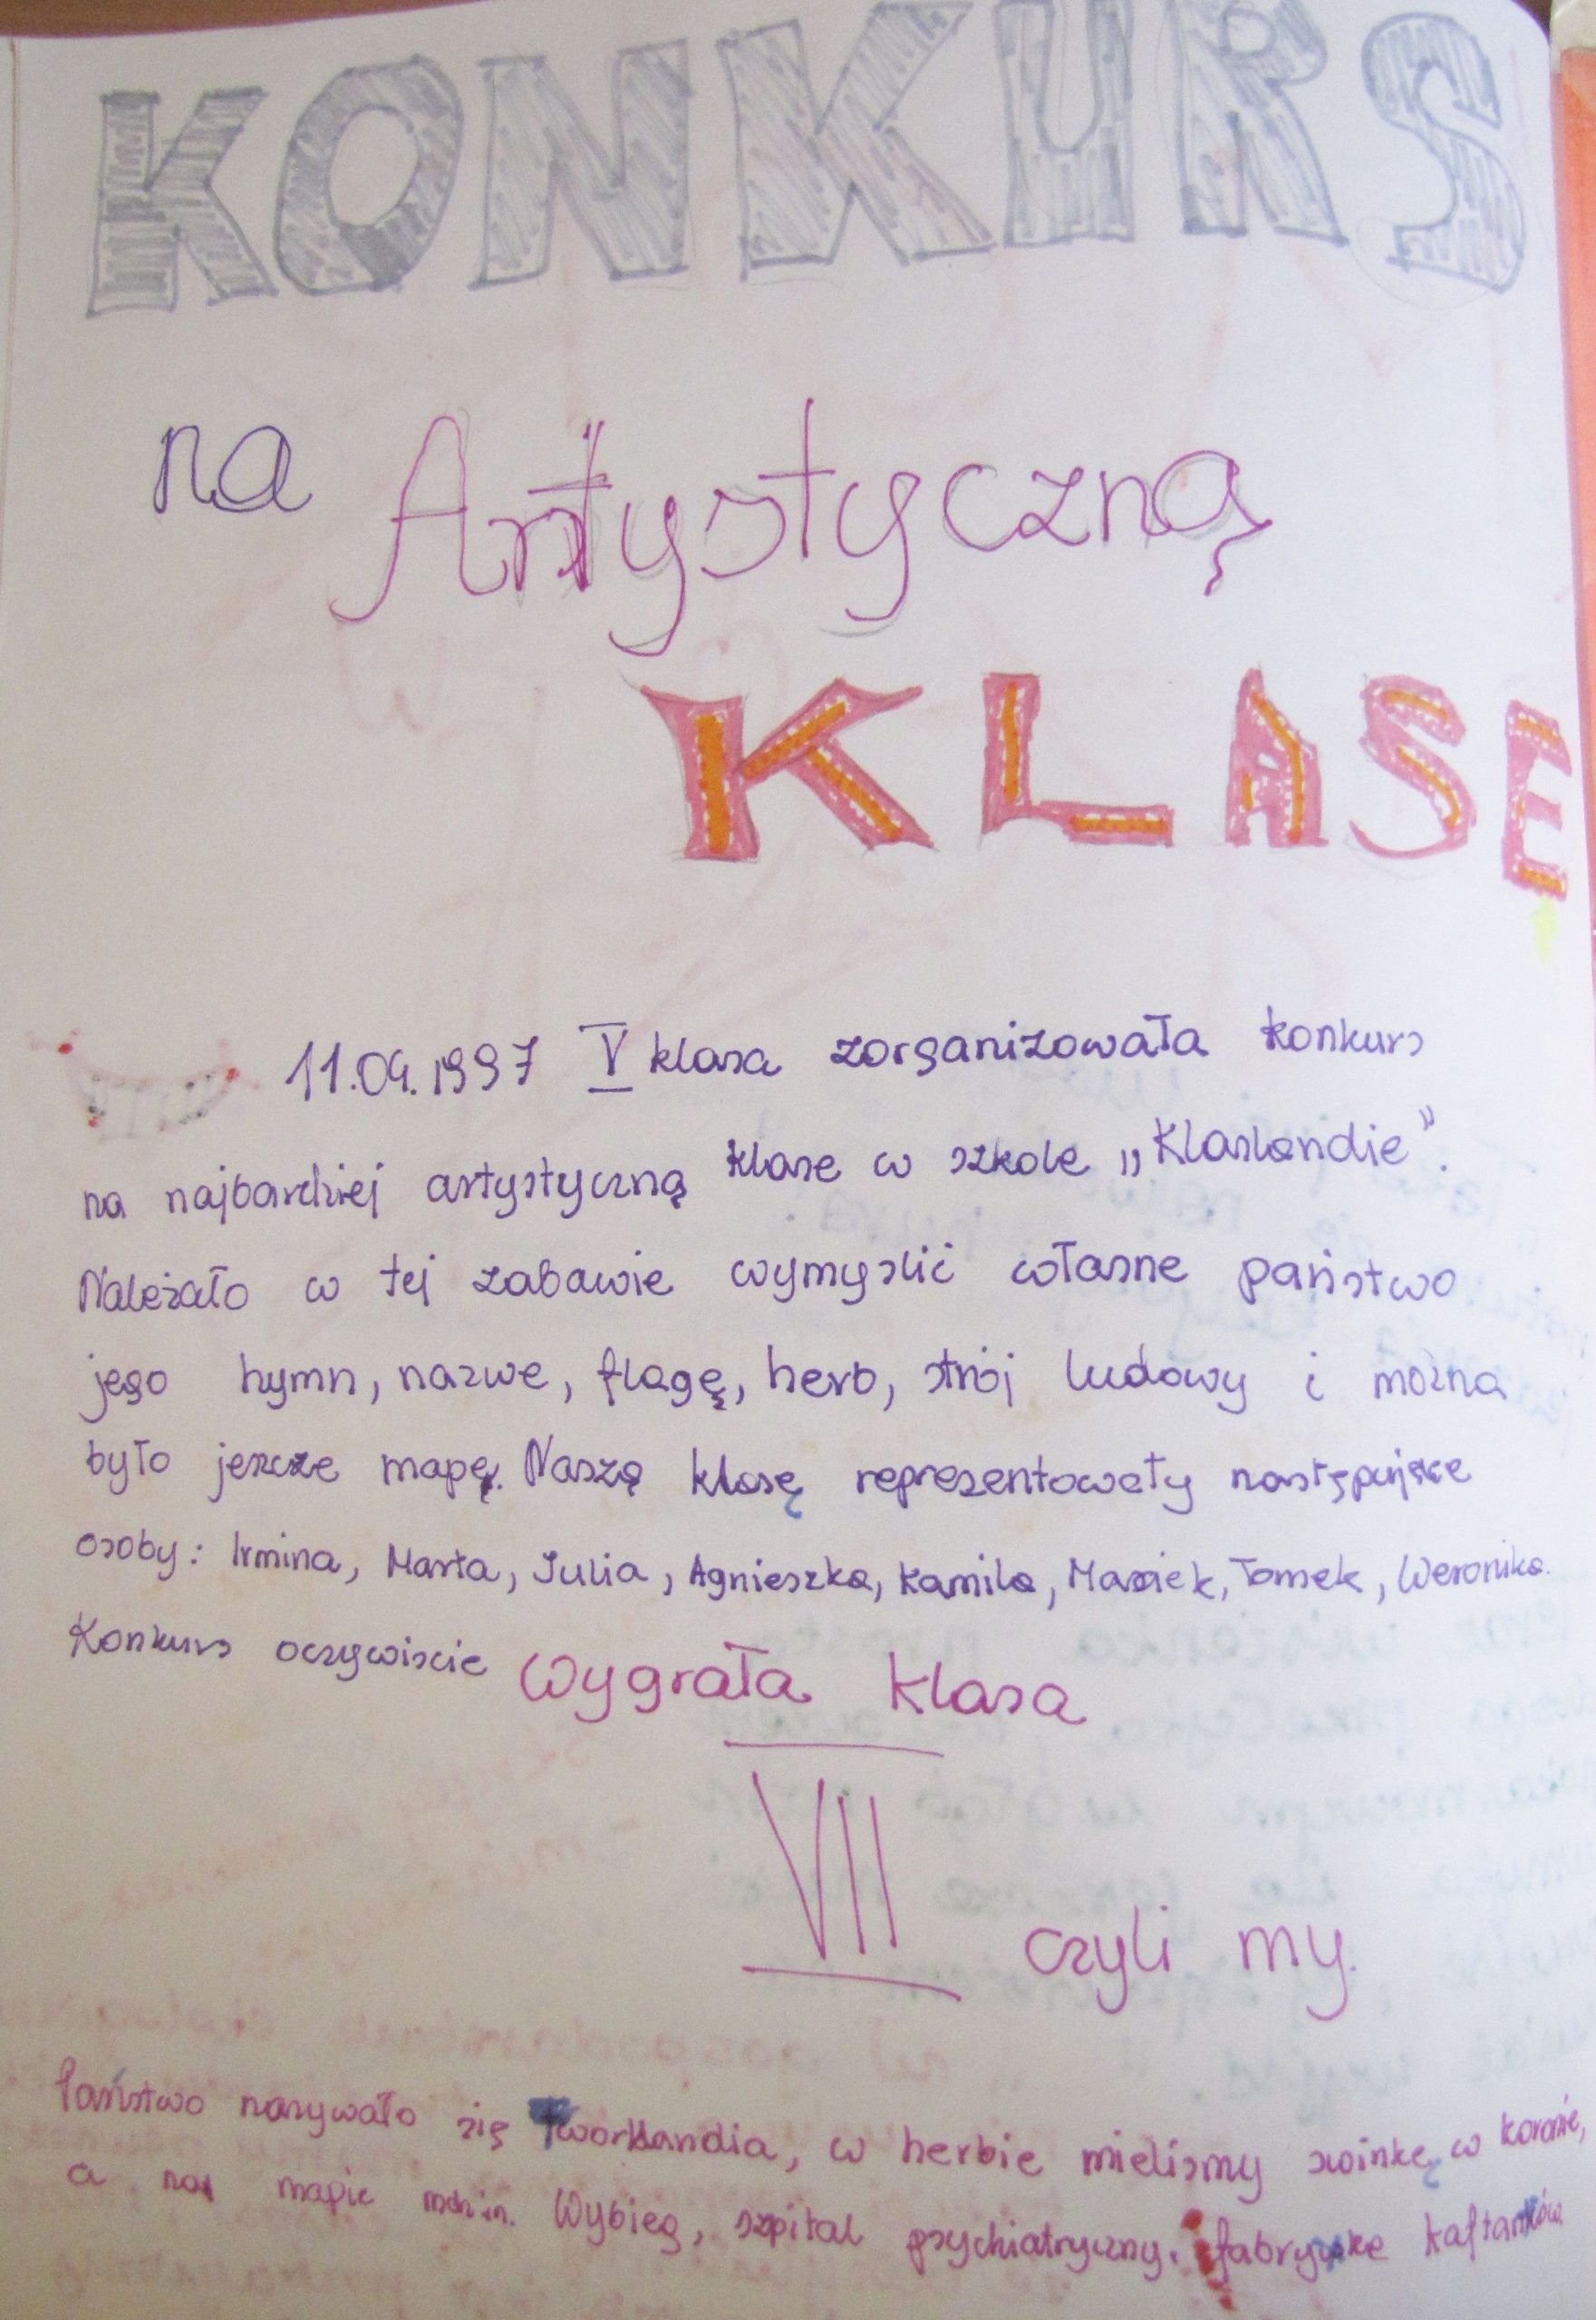 KONKURS
na Artystyczną
KLASE
11.09.1997 V klasa zorganizowała konkurs
na najbardziej artystyczną klase w szkole „Klaslandie”.
Należało w tej zabawie wymyslić własne państwo
jego hymn, nazwe, flagę, herb, strój ludowy i można
było jeszcze mapę. Naszą klasę reprezentowały następujące
osoby: Irmina, Marta, Julia, Agnieszka, Kamila, Maciek, Tomek, Weronika.
Konkurs oczywiscie wygrała klasa
VII czyli my.
Państwo nazywało się Tworklandia, w herbie mielismy swinkę w koronie,
a na mapie m.in. Wybieg, szpital psychiatryczny, fabryke kaftaników.